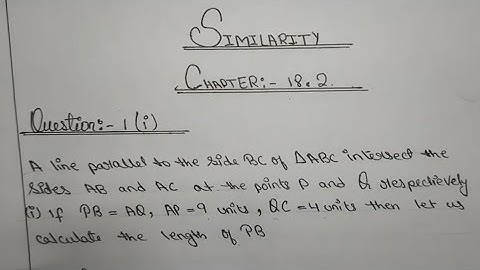 SIMILARITY
CHAPTER:- 18.2.
Question:- 1 (i)
A line parallel to the side BC of ΔABC intersect the
sides AB and AC at the points P and Q respectively
(i) If PB = AQ, AP = 9 units, QC = 4 units then let us
calculate the length of PB